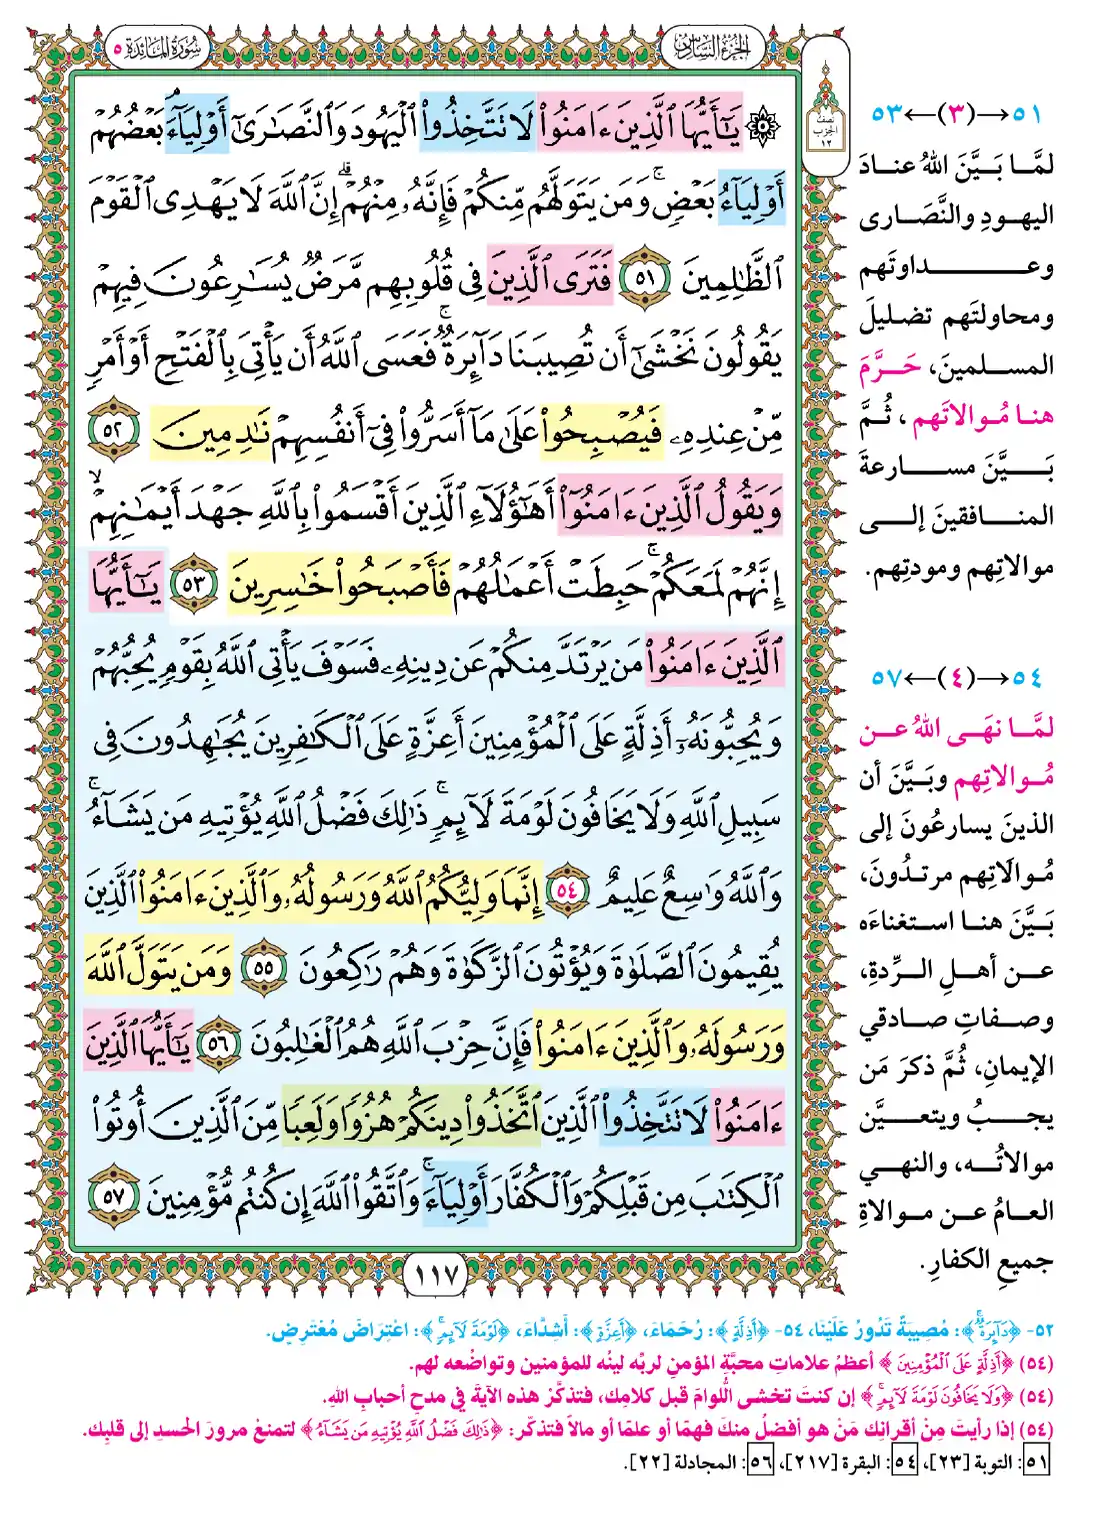 الجزء السادس
سورة المائدة ٥
نصف
الحزب
١٢
۞ يَٰٓأَيُّهَا ٱلَّذِينَ ءَامَنُوا۟ لَا تَتَّخِذُوا۟ ٱلْيَهُودَ وَٱلنَّصَٰرَىٰٓ أَوْلِيَآءَۘ بَعْضُهُمْ
أَوْلِيَآءُ بَعْضٍۚ وَمَن يَتَوَلَّهُم مِّنكُمْ فَإِنَّهُۥ مِنْهُمْۗ إِنَّ ٱللَّهَ لَا يَهْدِى ٱلْقَوْمَ
ٱلظَّٰلِمِينَ ٥١ فَتَرَى ٱلَّذِينَ فِى قُلُوبِهِم مَّرَضٌ يُسَٰرِعُونَ فِيهِمْ
يَقُولُونَ نَخْشَىٰٓ أَن تُصِيبَنَا دَآئِرَةٌۚ فَعَسَى ٱللَّهُ أَن يَأْتِىَ بِٱلْفَتْحِ أَوْ أَمْرٍ
مِّنْ عِندِهِۦ فَيُصْبِحُوا۟ عَلَىٰ مَآ أَسَرُّوا۟ فِىٓ أَنفُسِهِمْ نَٰدِمِينَ ٥٢
وَيَقُولُ ٱلَّذِينَ ءَامَنُوٓا۟ أَهَٰٓؤُلَآءِ ٱلَّذِينَ أَقْسَمُوا۟ بِٱللَّهِ جَهْدَ أَيْمَٰنِهِمْۙ
إِنَّهُمْ لَمَعَكُمْۚ حَبِطَتْ أَعْمَٰلُهُمْ فَأَصْبَحُوا۟ خَٰسِرِينَ ٥٣ يَٰٓأَيُّهَا
ٱلَّذِينَ ءَامَنُوا۟ مَن يَرْتَدَّ مِنكُمْ عَن دِينِهِۦ فَسَوْفَ يَأْتِى ٱللَّهُ بِقَوْمٍ يُحِبُّهُمْ
وَيُحِبُّونَهُۥٓ أَذِلَّةٍ عَلَى ٱلْمُؤْمِنِينَ أَعِزَّةٍ عَلَى ٱلْكَٰفِرِينَ يُجَٰهِدُونَ فِى
سَبِيلِ ٱللَّهِ وَلَا يَخَافُونَ لَوْمَةَ لَآئِمٍۚ ذَٰلِكَ فَضْلُ ٱللَّهِ يُؤْتِيهِ مَن يَشَآءُۚ
وَٱللَّهُ وَٰسِعٌ عَلِيمٌ ٥٤ إِنَّمَا وَلِيُّكُمُ ٱللَّهُ وَرَسُولُهُۥ وَٱلَّذِينَ ءَامَنُوا۟ ٱلَّذِينَ
يُقِيمُونَ ٱلصَّلَوٰةَ وَيُؤْتُونَ ٱلزَّكَوٰةَ وَهُمْ رَٰكِعُونَ ٥٥ وَمَن يَتَوَلَّ ٱللَّهَ
وَرَسُولَهُۥ وَٱلَّذِينَ ءَامَنُوا۟ فَإِنَّ حِزْبَ ٱللَّهِ هُمُ ٱلْغَٰلِبُونَ ٥٦ يَٰٓأَيُّهَا ٱلَّذِينَ
ءَامَنُوا۟ لَا تَتَّخِذُوا۟ ٱلَّذِينَ ٱتَّخَذُوا۟ دِينَكُمْ هُزُوًا وَلَعِبًا مِّنَ ٱلَّذِينَ أُوتُوا۟
ٱلْكِتَٰبَ مِن قَبْلِكُمْ وَٱلْكُفَّارَ أَوْلِيَآءَۚ وَٱتَّقُوا۟ ٱللَّهَ إِن كُنتُم مُّؤْمِنِينَ ٥٧
١١٧
٥١→(٣)←٥٣
لمَّا بَيَّنَ اللهُ عنادَ
اليهودِ والنَّصَارى
وعداوتَهم
ومحاولتَهم تضليلَ
المسلمينَ، حَرَّمَ
هنا مُوالاتَهم، ثُمَّ
بَيَّنَ مسارعةَ
المنافقينَ إلى
موالاتِهم ومودتِهم.
٥٤→(٤)←٥٧
لمَّا نهَى اللهُ عن
مُوالاتِهم وبَيَّنَ أن
الذينَ يسارعُونَ إلى
مُوالَاتِهم مرتدُونَ،
بَيَّنَ هنا استغناءَه
عن أهلِ الرِّدةِ،
وصفاتِ صادقي
الإيمانِ، ثُمَّ ذكرَ مَن
يجبُ ويتعيَّن
موالاتُه، والنهي
العامُ عن موالاةِ
جميعِ الكفارِ.
٥٢- ﴿دَآئِرَةٌۚ﴾: مُصِيبَةٌ تَدُورُ عَلَيْنَا، ٥٤- ﴿أَذِلَّةٍ﴾: رُحَمَاءَ، ﴿أَعِزَّةٍ﴾: أَشِدَّاءَ، ﴿لَوْمَةَ لَآئِمٍۚ﴾: اعْتِرَاضَ مُعْتَرِضٍ.
(٥٤) ﴿أَذِلَّةٍ عَلَى ٱلْمُؤْمِنِينَ﴾ أعظمُ علاماتِ محبَّةِ المؤمنِ لربِّه لينُه للمؤمنين وتواضُعه لهم.
(٥٤) ﴿وَلَا يَخَافُونَ لَوْمَةَ لَآئِمٍۚ﴾ إن كنتَ تخشى اللُّوامَ قبل كلامِك، فتذكَّرْ هذه الآيةَ في مدحِ أحبابِ اللهِ.
(٥٤) إذا رأيتَ مِنْ أقرانِك مَنْ هو أفضلُ منكَ فهمًا أو علمًا أو مالًا فتذكّر: ﴿ذَٰلِكَ فَضْلُ ٱللَّهِ يُؤْتِيهِ مَن يَشَآءُ﴾ لتمنعَ مرورَ الحسدِ إلى قلبِك.
٥١: التوبة [٢٣]، ٥٤: البقرة [٢١٧]، ٥٦: المجادلة [٢٢].